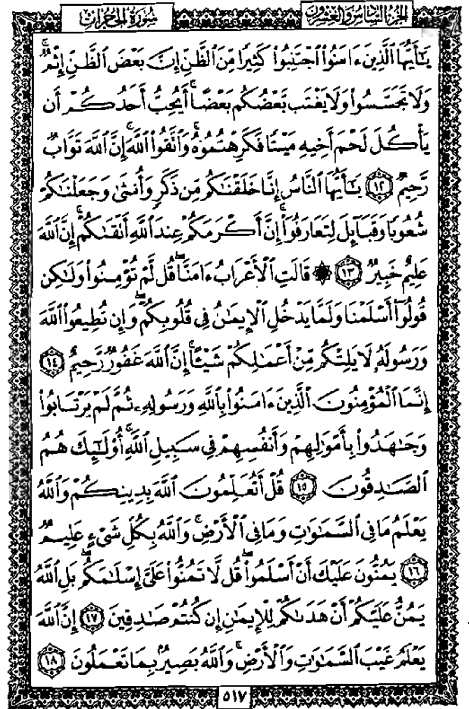 سورة الحجرات الجزء السادس والعشرون
يَٰٓأَيُّهَا ٱلَّذِينَ ءَامَنُوا۟ ٱجْتَنِبُوا۟ كَثِيرًا مِّنَ ٱلظَّنِّ إِنَّ بَعْضَ ٱلظَّنِّ إِثْمٌ ۖ
وَلَا تَجَسَّسُوا۟ وَلَا يَغْتَب بَّعْضُكُم بَعْضًا ۚ أَيُحِبُّ أَحَدُكُمْ أَن
يَأْكُلَ لَحْمَ أَخِيهِ مَيْتًا فَكَرِهْتُمُوهُ ۚ وَٱتَّقُوا۟ ٱللَّهَ ۚ إِنَّ ٱللَّهَ تَوَّابٌ
رَّحِيمٌ ١٢ يَٰٓأَيُّهَا ٱلنَّاسُ إِنَّا خَلَقْنَٰكُم مِّن ذَكَرٍ وَأُنثَىٰ وَجَعَلْنَٰكُمْ
شُعُوبًا وَقَبَآئِلَ لِتَعَارَفُوٓا۟ ۚ إِنَّ أَكْرَمَكُمْ عِندَ ٱللَّهِ أَتْقَىٰكُمْ ۚ إِنَّ ٱللَّهَ
عَلِيمٌ خَبِيرٌ ١٣ ۞ قَالَتِ ٱلْأَعْرَابُ ءَامَنَّا ۖ قُل لَّمْ تُؤْمِنُوا۟ وَلَٰكِن
قُولُوٓا۟ أَسْلَمْنَا وَلَمَّا يَدْخُلِ ٱلْإِيمَٰنُ فِى قُلُوبِكُمْ ۖ وَإِن تُطِيعُوا۟ ٱللَّهَ
وَرَسُولَهُۥ لَا يَلِتْكُم مِّنْ أَعْمَٰلِكُمْ شَيْـًٔا ۚ إِنَّ ٱللَّهَ غَفُورٌ رَّحِيمٌ ١٤
إِنَّمَا ٱلْمُؤْمِنُونَ ٱلَّذِينَ ءَامَنُوا۟ بِٱللَّهِ وَرَسُولِهِۦ ثُمَّ لَمْ يَرْتَابُوا۟
وَجَٰهَدُوا۟ بِأَمْوَٰلِهِمْ وَأَنفُسِهِمْ فِى سَبِيلِ ٱللَّهِ ۚ أُو۟لَٰٓئِكَ هُمُ
ٱلصَّٰدِقُونَ ١٥ قُلْ أَتُعَلِّمُونَ ٱللَّهَ بِدِينِكُمْ وَٱللَّهُ
يَعْلَمُ مَا فِى ٱلسَّمَٰوَٰتِ وَمَا فِى ٱلْأَرْضِ ۚ وَٱللَّهُ بِكُلِّ شَىْءٍ عَلِيمٌ
١٦ يَمُنُّونَ عَلَيْكَ أَنْ أَسْلَمُوا۟ ۖ قُل لَّا تَمُنُّوا۟ عَلَىَّ إِسْلَٰمَكُم ۖ بَلِ ٱللَّهُ
يَمُنُّ عَلَيْكُمْ أَنْ هَدَىٰكُمْ لِلْإِيمَٰنِ إِن كُنتُمْ صَٰدِقِينَ ١٧ إِنَّ ٱللَّهَ
يَعْلَمُ غَيْبَ ٱلسَّمَٰوَٰتِ وَٱلْأَرْضِ ۚ وَٱللَّهُ بَصِيرٌۢ بِمَا تَعْمَلُونَ ١٨
٥١٧